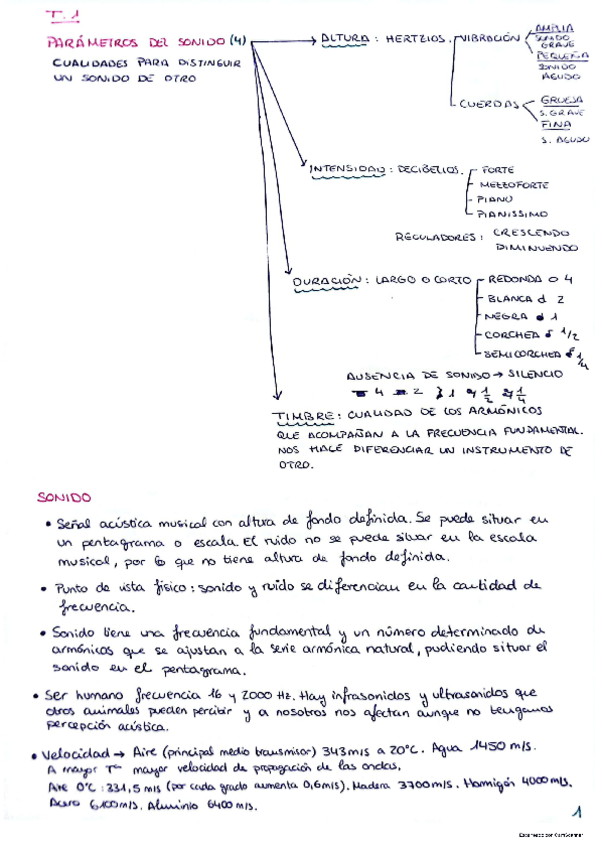 T. 1
PARÁMETROS DEL SONIDO (4)
CUALIDADES PARA DISTINGUIR
UN SONIDO DE OTRO
ALTURA : HERTZIOS. VIBRACIÓN
AMPLIA
SONIDO
GRAVE
PEQUEÑA
SONIDO
AGUDO
CUERDAS
GRUESA
S. GRAVE
FINA
S. AGUDO
INTENSIDAD : DECIBELIOS.
FORTE
MEZZOFORTE
PIANO
PIANISSIMO
REGULADORES : CRESCENDO
DIMINUENDO
DURACIÓN : LARGO O CORTO
REDONDA o 4
BLANCA 2
NEGRA 1
CORCHEA 1/2
SEMICORCHEA 1/4
AUSENCIA DE SONIDO → SILENCIO
4 2 1 1/2 1/4
TIMBRE : CUALIDAD DE LOS ARMÓNICOS
QUE ACOMPAÑAN A LA FRECUENCIA FUNDAMENTAL.
NOS HACE DIFERENCIAR UN INSTRUMENTO DE
OTRO.
SONIDO
• Señal acústica musical con altura de fondo definida. Se puede situar en
un pentagrama o escala. El ruido no se puede situar en la escala
musical, por lo que no tiene altura de fondo definida.
• Punto de vista físico : sonido y ruido se diferencian en la cantidad de
frecuencia.
• Sonido tiene una frecuencia fundamental y un número determinado de
armónicos que se ajustan a la serie armónica natural, pudiendo situar el
sonido en el pentagrama.
• Ser humano frecuencia 16 y 2000 Hz. Hay infrasonidos y ultrasonidos que
otros animales pueden percibir y a nosotros nos afectan aunque no tengamos
percepción acústica.
• Velocidad → Aire (principal medio transmisor) 343m/s a 20°C. Agua 1450 m/s.
A mayor Tª mayor velocidad de propagación de las ondas.
Aire 0°C : 331,5 m/s (por cada grado aumenta 0,6m/s). Madera 3700m/s. Hormigón 4000m/s.
Acero 6100m/s. Aluminio 6400 m/s.
1
Escaneado con CamScanner